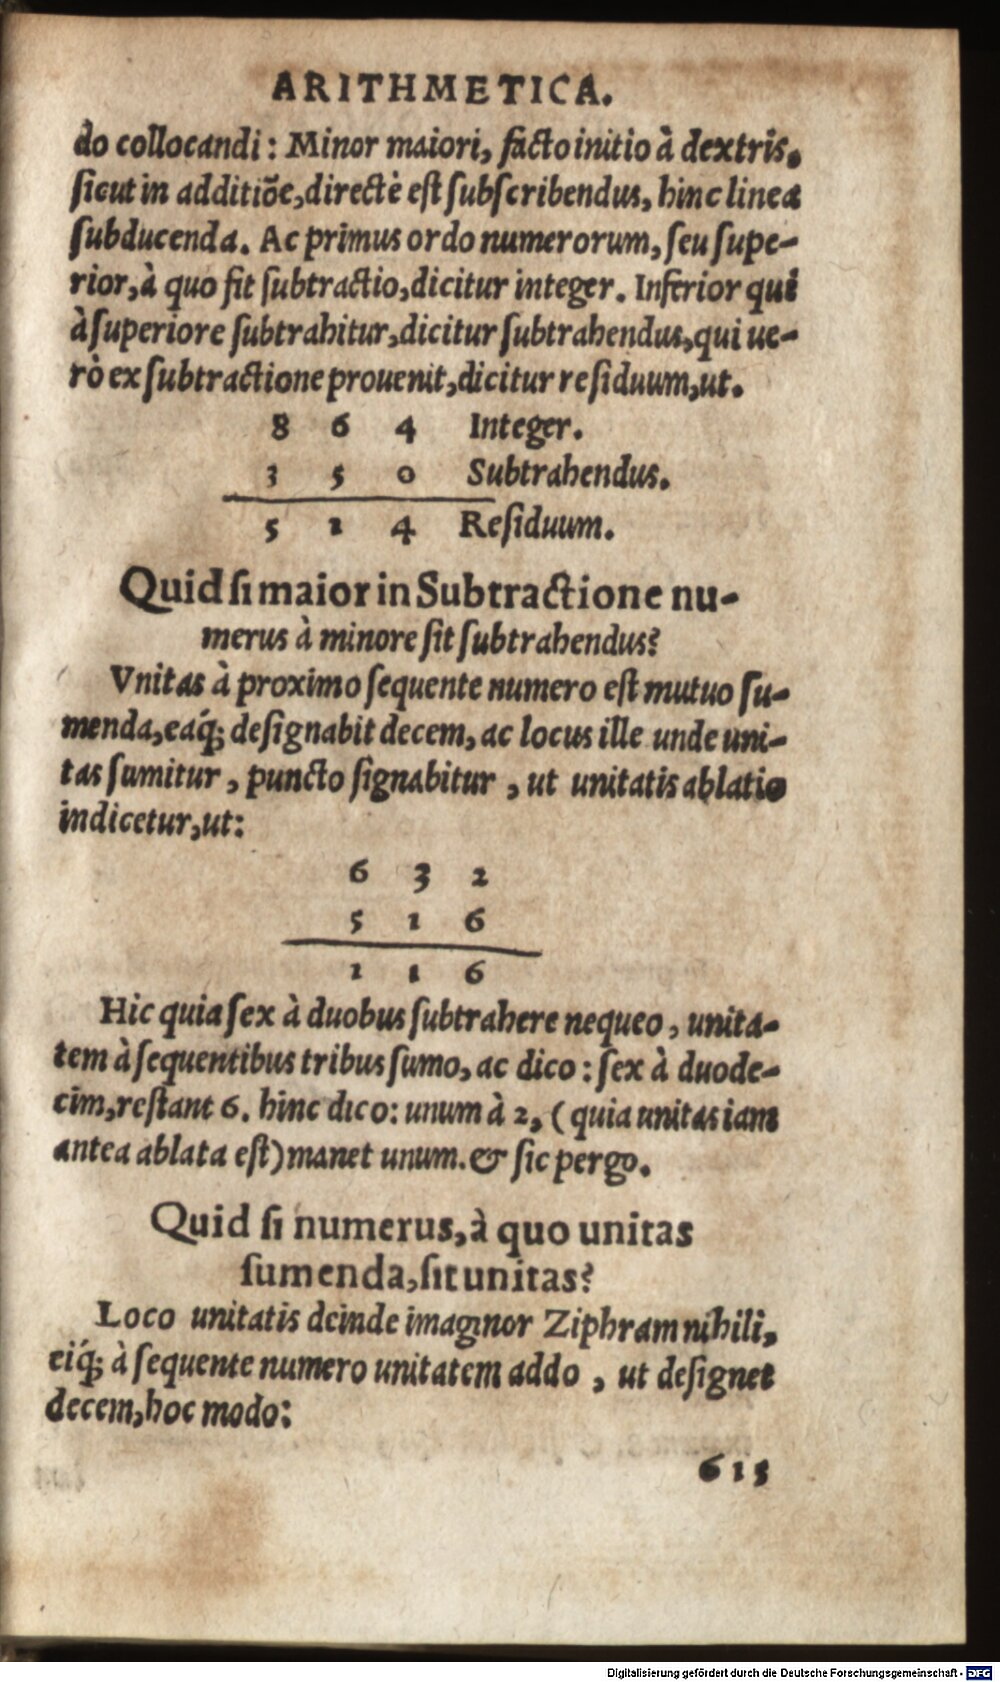 ARITHMETICA.
do collocandi: Minor maiori, facto initio à dextris.
sicut in additiōe, directè est subscribendus, hinc linea
subducenda. Ac primus ordo numerorum, seu supe-
rior, à quo fit subtractio, dicitur integer. Inferior qui
à superiore subtrahitur, dicitur subtrahendus, qui ue-
rò ex subtractione prouenit, dicitur residuum, ut.
8 6 4 Integer.
3 5 0 Subtrahendus.
5 1 4 Residuum.
Quid si maior in Subtractione nu-
merus à minore sit subtrahendus?
Vnitas à proximo sequente numero est mutuo su-
menda, eaq́; designabit decem, ac locus ille unde uni-
tas sumitur, puncto signabitur, ut unitatis ablatio
indicetur, ut:
6 3 2
5 1 6
1 1 6
Hic quia sex à duobus subtrahere nequeo, unita-
tem à sequentibus tribus sumo, ac dico: sex à duode-
cim, restant 6. hinc dico: unum à 2, (quia unitas iam
antea ablata est) manet unum. & sic pergo.
Quid si numerus, à quo unitas
sumenda, sit unitas?
Loco unitatis deinde imaginor Ziphram nihili,
eiq́; à sequente numero unitatem addo, ut designet
decem, hoc modo:
615
Digitalisierung gefördert durch die Deutsche Forschungsgemeinschaft - DFG